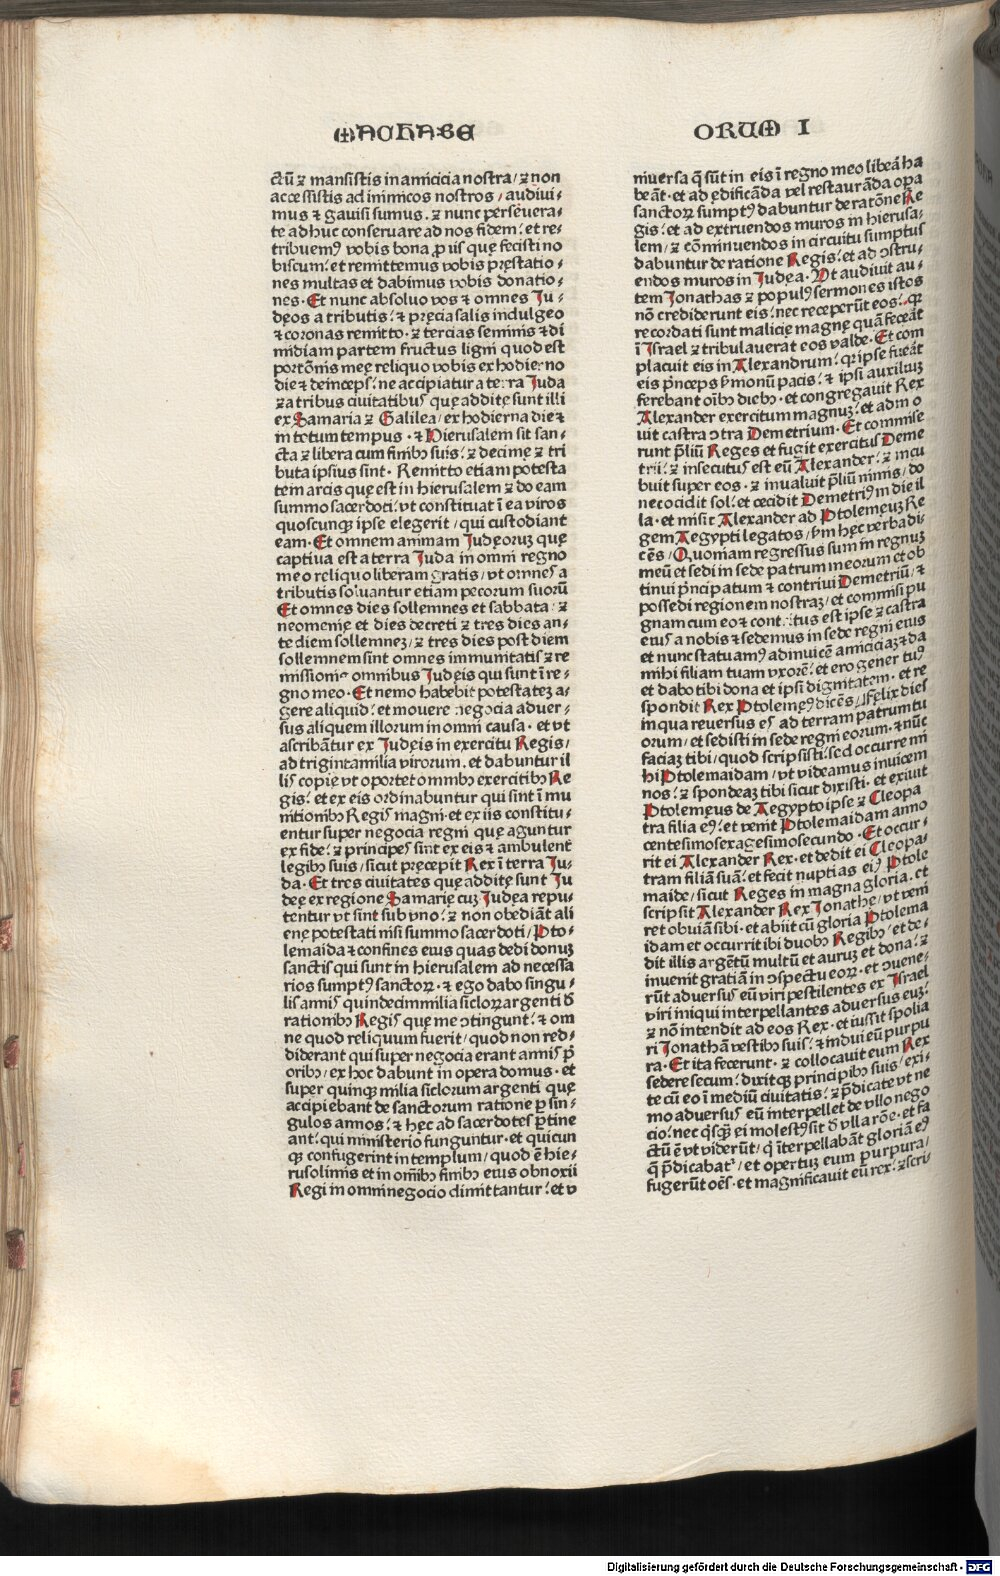 MACHABE
ctū ⁊ mansistis in amicicia nostra / ⁊ non
accessistis ad inimicos nostros / audiui⸗
mus ⁊ gauisi sumus . ⁊ nunc perseuera⸗
te adhuc conseruare ad nos fidem : et re⸗
tribuemꝰ vobis bona ꝓ iis quę fecisti no
biscum : et remittemus vobis pręstatio⸗
nes multas et dabimus vobis donatio⸗
nes · Et nunc absoluo vos ⁊ omnes Ju⸗
dęos a tributis : ⁊ pręcia salis indulgeo
⁊ coronas remitto · ⁊ tercias seminis ⁊ di
midiam partem fructus ligni quod est
portōnis meę reliquo vobis ex hodierno
die ⁊ deinceps : ne accipiatur a terra Juda
⁊ a tribus ciuitatibus quę additę sunt illi
ex Samaria ⁊ Galilea / ex hodierna die ⁊
in totum tempus · ⁊ Hierusalem sit san⸗
cta ⁊ libera cum finibꝫ suis : ⁊ decimę ⁊ tri
buta ipsius sint · Remitto etiam potesta
tem arcis quę est in hierusalem ⁊ do eam
summo sacerdoti : vt constituat ī ea viros
quoscunqꝫ ipse elegerit / qui custodiant
eam · Et omnem animam Judęoruꝫ quę
captiua est a terra Juda in omni regno
meo reliquo liberam gratis / vt omnes a
tributis soluantur etiam pecorum suorū
Et omnes dies sollemnes et sabbata : ⁊
neomenię et dies decreti ⁊ tres dies an⸗
te diem sollemneꝫ / ⁊ tres dies post diem
sollemnem sint omnes immunitatis ⁊ re
missionis omnibus Judęis qui sunt ī re⸗
gno meo · Et nemo habebit potestateꝫ a⸗
gere aliquid : et mouere negocia aduer⸗
sus aliquem illorum in omni causa . et vt
ascribātur ex Judęis in exercitu Regis /
ad triginta milia virorum . et dabuntur il
lis copię vt oportet omnibꝫ exercitibꝫ Re
gis : et ex eis ordinabuntur qui sint ī mu
nitionibꝫ Regis magni · et ex iis constitu⸗
entur super negocia regni quę aguntur
ex fide : ⁊ principes sint ex eis ⁊ ambulent
legibꝫ suis / sicut pręcepit Rex ī terra Ju⸗
da · Et tres ciuitates quę additę sunt Ju
dęę ex regione Samarię cuꝫ Judęa repu⸗
tentur vt sint sub vno : ⁊ non obediāt ali
enę potestati nisi summo sacerdoti / Pto⸗
lemaida ⁊ confines eius quas dedi donuꝫ
sanctis qui sunt in hierusalem ad necessa
rios sumptꝰ sanctoꝝ · ⁊ ego dabo singu⸗
lis annis quindecim milia sicloꝝ argenti đ
rationibꝫ Regis quę me ↄtingunt : ⁊ om
ne quod reliquum fuerit / quod non red⸗
diderant qui super negocia erant annis p̄
oribꝫ / ex hoc dabunt in opera domus · et
super quinqꝫ milia siclorum argenti quę
accipiebant de sanctorum ratione ꝑ sin⸗
gulos annos : ⁊ hęc ad sacerdotes ꝑtine
ant : qui ministerio funguntur · et quicun
qꝫ confugerint in templum / quod ē hie⸗
rusolimis et in oīībꝫ finibꝫ eius obnoxii
Regi in omni negocio dimittantur : et v
ORUM I
niuersa q̄ sūt in eis ī regno meo libeā ha
beāt · et ad ędificāda vel restaurāda oꝑa
sanctoꝝ sumptꝰ dabuntur de ratōne Re
gis : et ad extruendos muros in hierusa⸗
lem / ⁊ cōminuendos in circuitu sumptus
dabuntur de ratione Regis : et ad ↄstru⸗
endos muros in Judęa · Ut audiuit au⸗
tem Jonathas ⁊ populꝰ sermones istos
nō crediderunt eis : nec receperūt eos : qꝛ
recordati sunt malicię magnę quā feceāt
ī Israel ⁊ tribulauerat eos valde · Et com
placuit eis in Alexandrum : qꝛ ipse fueāt
eis p̄nceps ẜmonū pacis : ⁊ ipsi auxiliuꝫ
ferebant oībꝫ diebꝫ · et congregauit Rex
Alexander exercitum magnuꝫ : et admo
uit castra ↄtra Demetrium · Et commise
runt p̄liū Reges et fugit exercitus Deme
trii : ⁊ insecutus est eū Alexander : ⁊ incu
buit super eos · ⁊ inualuit p̄liū nimis / do
nec ocidit sol : et cecidit Demetriꝰ in die il
la · et misit Alexander ad Ptolemęuꝫ Re
gem Aegypti legatos / ẜm hęc verba di⸗
cēs / Quoniam regressus sum in regnuꝫ
meū et sedi in sede patrum meorum et ob
tinui p̄ncipatum ⁊ contriui Demetriū / ⁊
possedi regionem nostraꝫ / et commisi pu
gnam cum eo ⁊ contritus est ipse ⁊ castra
eius a nobis ⁊ sedemus in sede regni eius
et nunc statuamꝰ adinuicē amiciciaꝫ ⁊ da
mihi filiam tuam vxorē : et ero gener tuꝰ
et dabo tibi dona et ipsi dignitatem . et re
spondit Rex Ptolemęꝰ dicēs / Felix dies
in qua reuersus es ad terram patrum tu
orum / et sedisti in sede regni eorum · ⁊ nūc
faciaꝫ tibi / quod scripsisti : sed occurre mi
hi Ptolemaidam / vt videamus inuicem
nos : ⁊ spondeaꝫ tibi sicut dixisti · et exiuit
Ptolemęus de Aegypto ipse ⁊ Cleopa
tra filia eꝰ : et venit Ptolemaidam anno
centesimosexagesimosecundo · Et occur⸗
rit ei Alexander Rex · et dedit ei Cleopa⸗
tram filiā suā : et fecit nuptias eiꝰ Ptole
maide / sicut Reges in magna gloria . et
scripsit Alexander Rex Jonathę / vt veni
ret obuiā sibi · et abiit cū gloria Ptolema
idam et occurrit ibi duobꝫ Regibꝫ / et de⸗
dit illis argētū multū et auruꝫ et dona : ⁊
inuenit gratiā in ↄspectu eoꝝ · et ↄuene⸗
rūt aduersus eū viri pestilentes ex Israel
viri iniqui interpellantes aduersus euꝫ :
⁊ nō intendit ad eos Rex · et iussit spolia
ri Jonathā vestibꝫ suis : ⁊ indui eū purpu
ra · Et ita fecerunt · ⁊ collocauit eum Rex
sedere secum : dixitqꝫ principibꝫ suis / exi⸗
te cū eo ī mediū ciuitatis : ⁊ p̄dicate vt ne
mo aduersus eū interpellet de vllo nego
cio : nec qͥsqꝫ ei molestꝰ sit đ vlla rōne · et fa
ctū ē vt viderūt / q̄ īterpellabāt gloriā eꝰ
q̄ p̄dicabatᷣ / et opertuꝫ eum purpura /
fugerūt oēs · et magnificauit eū rex : ⁊ scri⸗
Digitalisierung gefördert durch die Deutsche Forschungsgemeinschaft - DFG